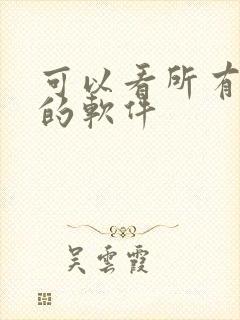 可以看所有
的軟件
吴雲霞